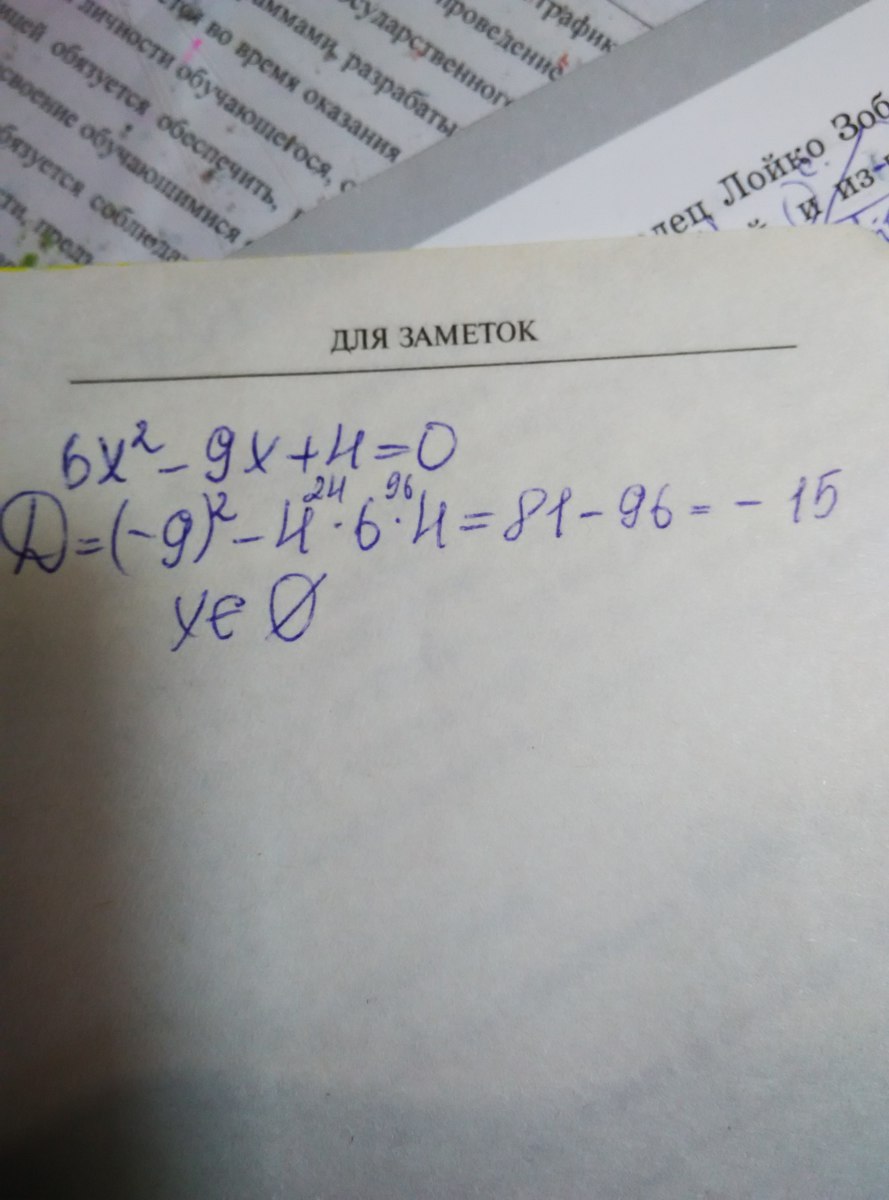 график
проведение
государственного
граммами, разрабаты
во время оказания
личности обучающегося, с
щей обязуется обеспечить,
своение обучающимися
обязуется соблюда
лец Лойко Зоб
и из-
ДЛЯ ЗАМЕТОК
6x² - 9x + 4 = 0
24 96
D = (-9)² - 4 · 6 · 4 = 81 - 96 = - 15
x ∈ ∅